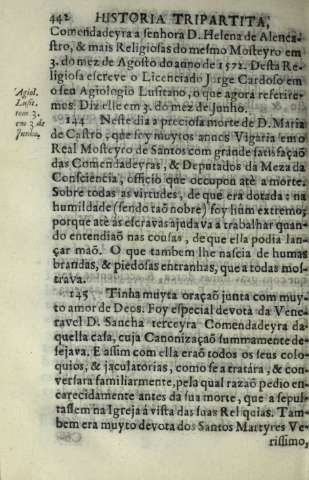 442 HISTORIA TRIPARTITA,
Comendadeyra a senhora D. Helena de Alenca-
stro, & mais Religiosas do mesmo Mosteyro em
3. do mez de Agosto do anno de 1572. Desta Re-
ligiosa escreve o Licenciado Jorge Cardoso em
o seu Agiologio Lusitano, o que agora referire-
mos. Diz elle em 3. do mez de Junho.
Agiol.
Lusit.
tom 3.
em 3 de
Junho.
144 Neste dia a preciosa morte de D. Maria
de Castro, que foy muytos annos Vigaria em o
Real Mosteyro de Santos com grande satisfaçaõ
das Comendadeyras, & Deputados da Meza da
Consciencia, officio que occupou atè a morte.
Sobre todas as virtudes, de que era dotada: na
humildade (sendo taõ nobre) foy hum extremo;
porque atè as escravas ajudava a trabalhar quan-
do entendiaõ nas cousas, de que ella podia lan-
çar maõ. O que tambem lhe nascia de humas
brandas, & piedosas entranhas, que a todas mos-
trava.
145 Tinha muyta oraçaõ junta com muy-
to amor de Deos. Foy especial devota da Vene-
ravel D. Sancha terceyra Comendadeyra da-
quella casa, cuja Canonizaçaõ summamente de-
sejava. E assim com ella eraõ todos os seus colo-
quios, & jaculatorias, como se a tratára, & con-
versara familiarmente, pela qual razaõ pedio en-
carecidamente antes da sua morte, que a sepul-
tassem na Igreja á vista das suas Reliquias. Tam-
bem era muyto devota dos Santos Martyres Ve-
rissimo,